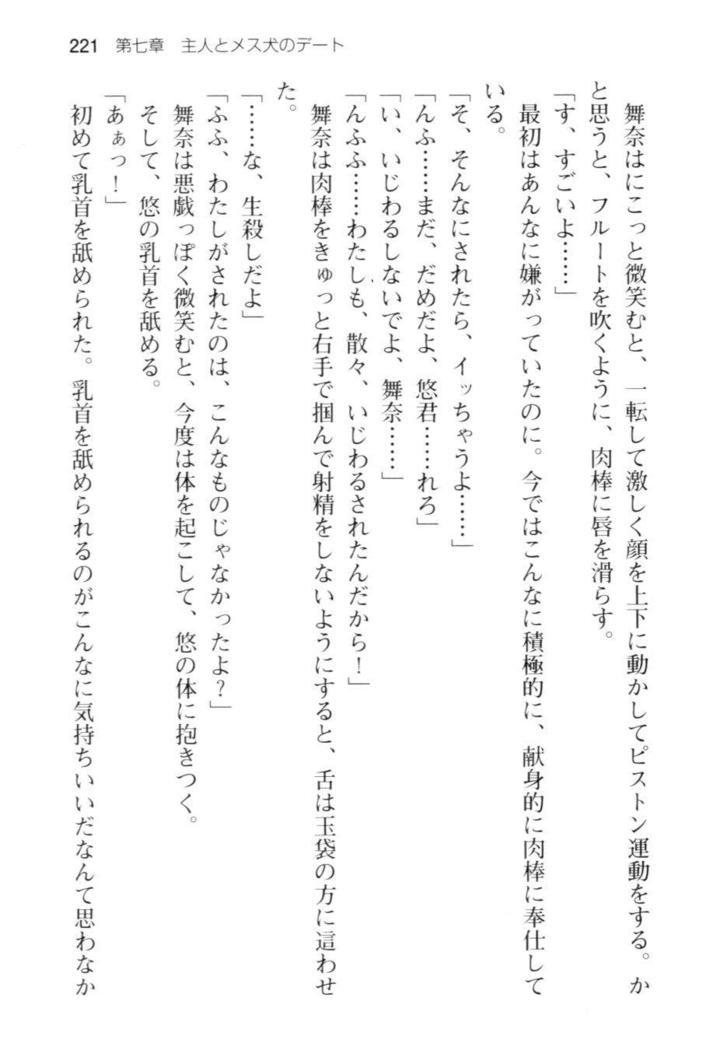 221 第七章 主人とメス犬のデート
舞奈はにこっと微笑むと、一転して激しく顔を上下に動かしてピストン運動をする。か
と思うと、フルートを吹くように、肉棒に唇を滑らす。
「す、すごいよ……」
最初はあんなに嫌がっていたのに。今ではこんなに積極的に、献身的に肉棒に奉仕して
いる。
「そ、そんなにされたら、イッちゃうよ……」
「んふ……まだ、だめだよ、悠君……れろ」
「い、いじわるしないでよ、舞奈……」
「んふふ……わたしも、散々、いじわるされたんだから！」
舞奈は肉棒をきゅっと右手で掴んで射精をしないようにすると、舌は玉袋の方に這わせ
た。
「……な、生殺しだよ」
「ふふ、わたしがされたのは、こんなものじゃなかったよ？」
舞奈は悪戯っぽく微笑むと、今度は体を起こして、悠の体に抱きつく。
そして、悠の乳首を舐める。
「あぁっ！」
初めて乳首を舐められた。乳首を舐められるのがこんなに気持ちいいだなんて思わなか